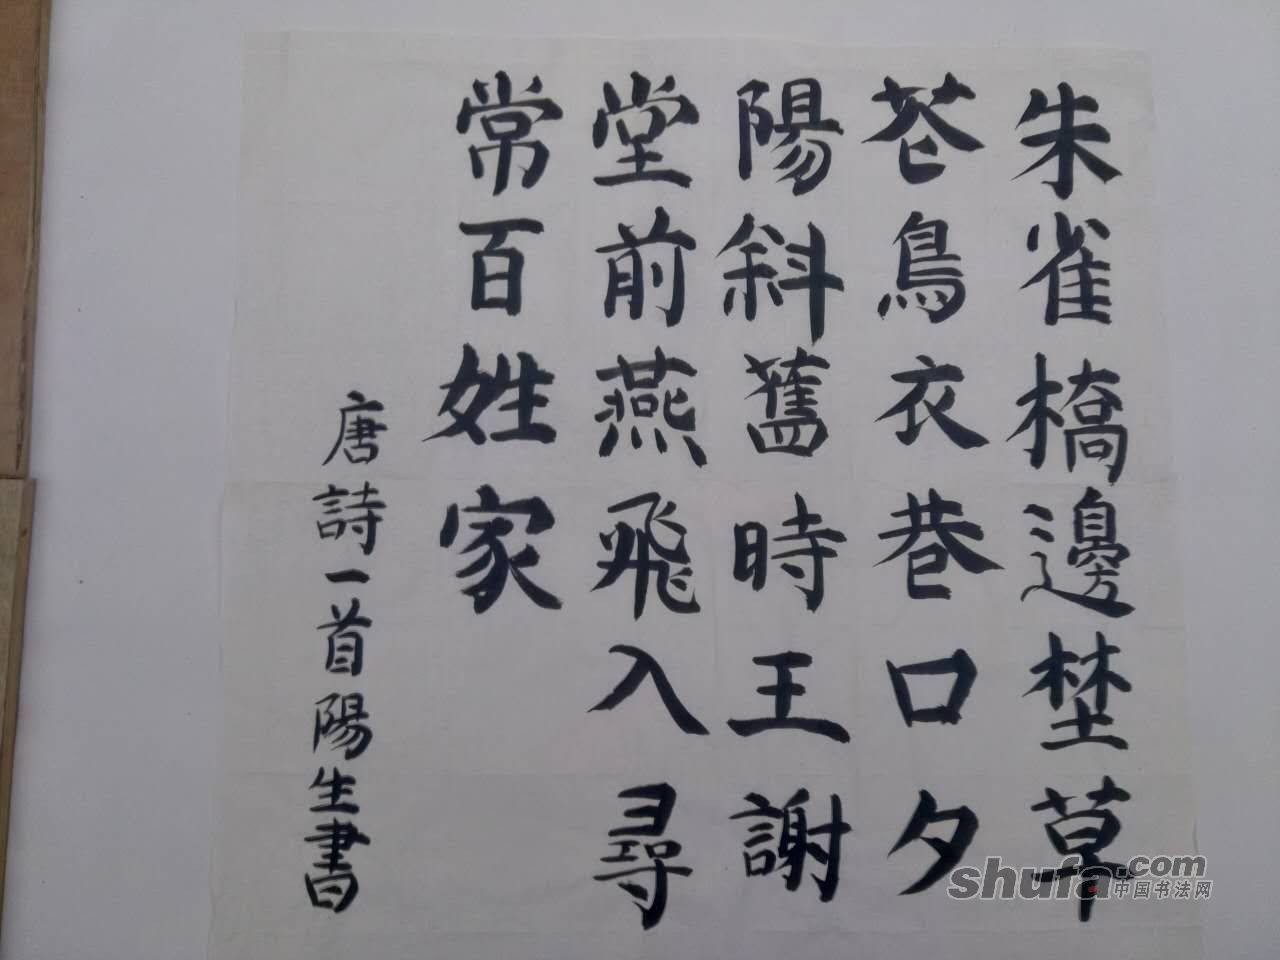 朱雀橋邊埜草
苍鳥衣巷口夕
陽斜舊時王謝
堂前燕飛入尋
常百姓家
唐詩一首陽生書
shufa.com
中国书法网